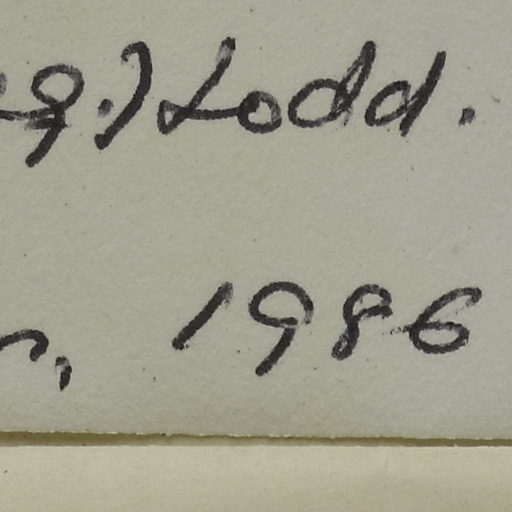 g.) Lodd.
1986